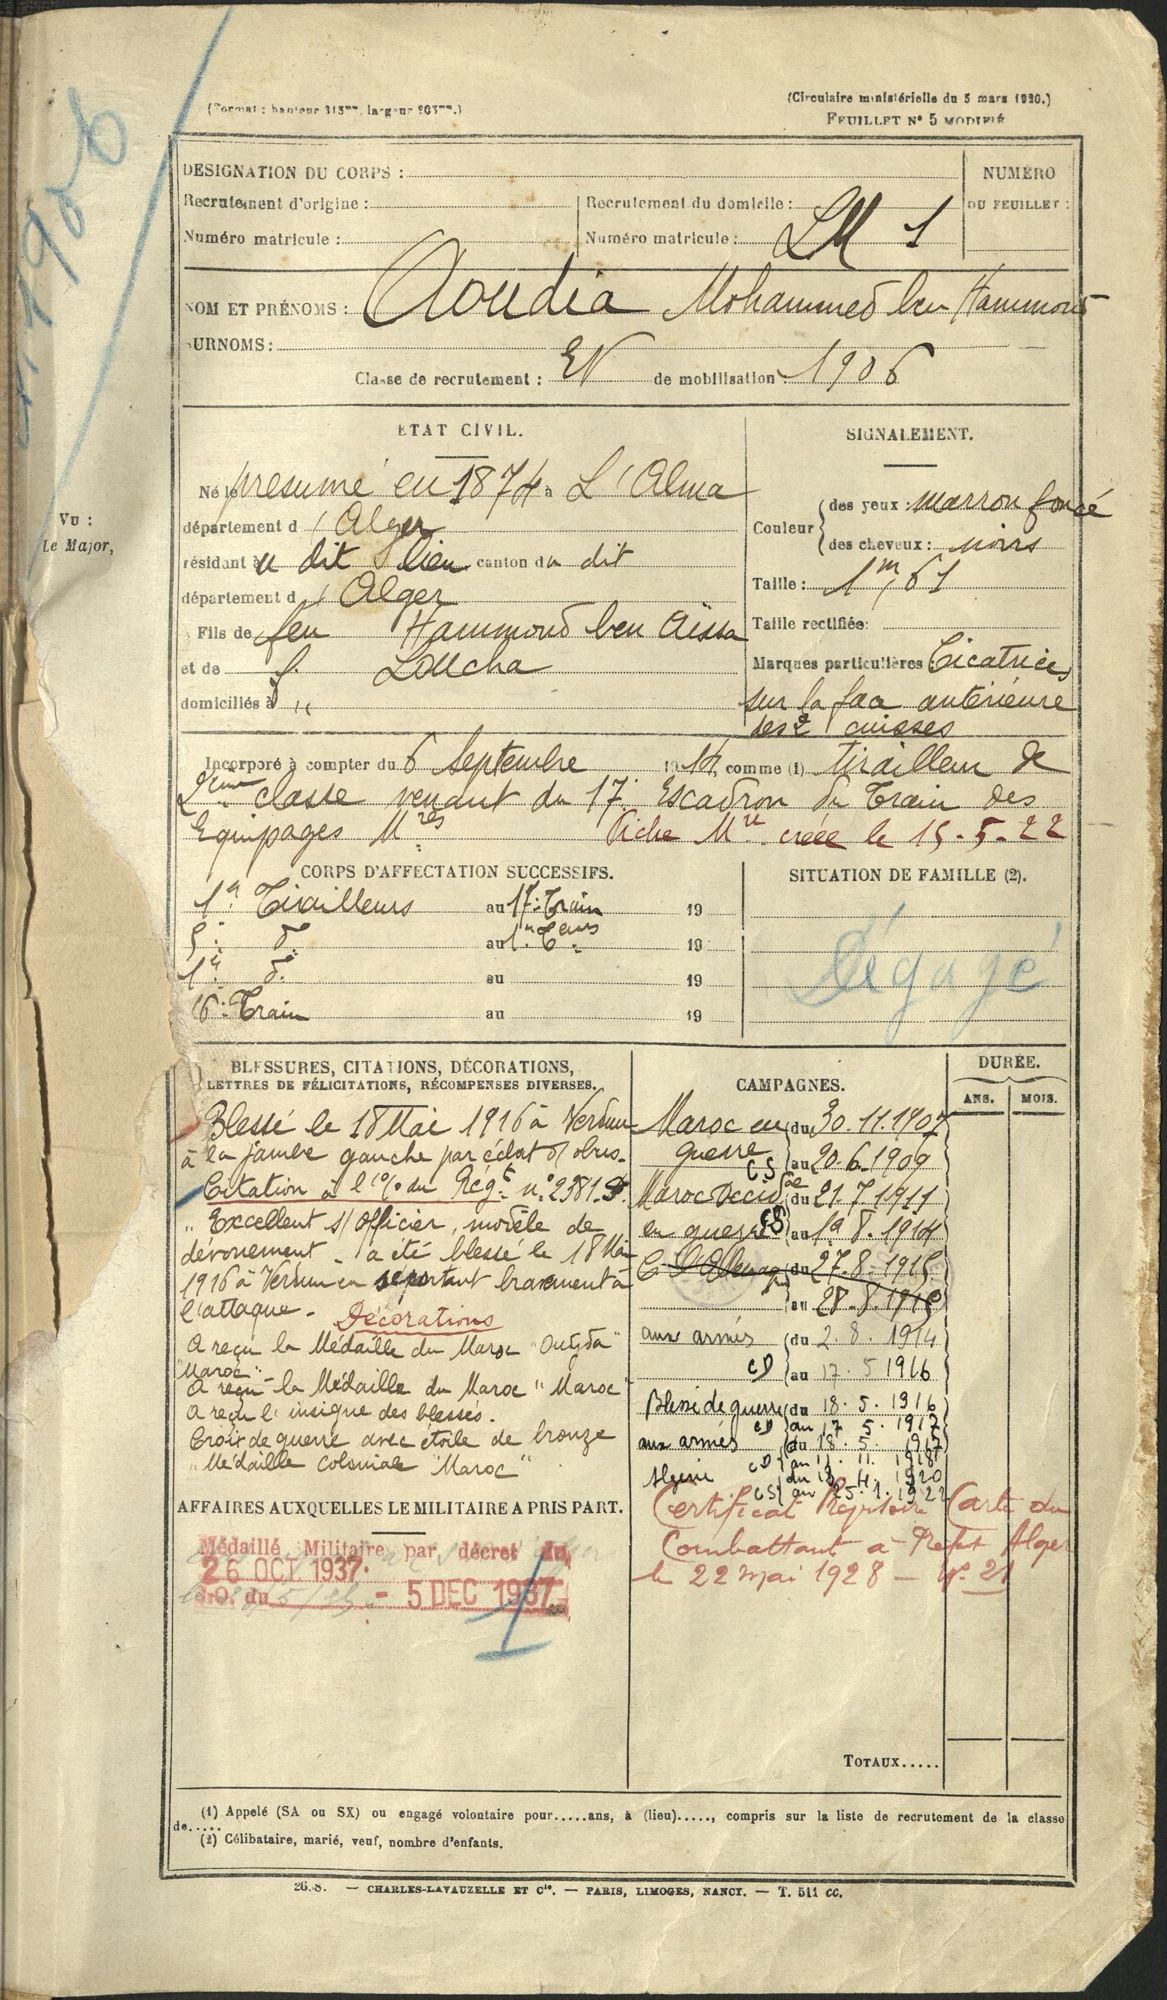 1906
(Format : hauteur 315mm, largeur 205mm.)
(Circulaire ministérielle du 5 mars 1920.)
FEUILLET N° 5 MODIFIÉ
DESIGNATION DU CORPS :
NUMÉRO
DU FEUILLET :
Recrutement d'origine :
Recrutement du domicile :
Numéro matricule :
Numéro matricule : LM 1
NOM ET PRÉNOMS : Aoudia Mohammed ben Hammoud
SURNOMS :
Classe de recrutement : EV de mobilisation : 1906
ETAT CIVIL.
Né le présumé en 1874 à L'Alma
département d'Alger
résidant à u dit lieu canton du dit
département d'Alger
Fils de feu Hammoud ben Aïssa
et de f. Loucha
domiciliés à "
SIGNALEMENT.
Couleur
des yeux : marron foncé
des cheveux : noirs
Taille : 1m,61
Taille rectifiée :
Marques particulières Cicatrices
sur la face antérieure
des 2 cuisses
Vu :
Le Major,
Incorporé à compter du 6 Septembre 1914, comme (1) tirailleur de
2ème classe venant du 17e Escadron du Train des
Equipages Mres Fiche Mle créée le 15-5-22
CORPS D'AFFECTATION SUCCESSIFS.
1er Tirailleurs au 17e Train 19
5e do au 1er Teurs 19
1er do au 19
16e Train au 19
SITUATION DE FAMILLE (2).
Dégagé
BLESSURES, CITATIONS, DÉCORATIONS,
LETTRES DE FÉLICITATIONS, RÉCOMPENSES DIVERSES.
Blessé le 18 Mai 1916 à Verdun
à la jambe gauche par éclat d'obus.
Citation à l'o/o du Régt n° 2381
"Excellent s/officier, modèle de
dévouement - a été blessé le 18 Mai
1916 à Verdun en se portant bravement à
l'attaque -
Décorations
A reçu la Médaille du Maroc "Oudjda"
"Maroc"
A reçu la Médaille du Maroc "Maroc"
A reçu l'insigne des blessés.
Croix de guerre avec étoile de bronze
"Médaille Coloniale "Maroc"
CAMPAGNES.
DURÉE.
ANS.
MOIS.
Maroc en du 30.11.1907
guerre CS au 20.6.1909
Maroc Occidtal du 21.7.1911
en guerre CS au 1er 8.1914
C. l'Allemag du 27.8.1915
au 28.8.1915
aux armées du 2.8.1914
CD au 17.5.1916
Blessé de guerre du 18.5.1916
CD au 17.5.1917
aux armées du 18.5.1917
CD au 11.11.1918
Algérie du 13.4.1920
CS au 25.1.1922
Certificat Carte du
Combattant à Préfet Alger
le 22 mai 1928 - N° 21
AFFAIRES AUXQUELLES LE MILITAIRE A PRIS PART.
Médaillé Militaire par décret du
26 OCT 1937.
J.O. du - 5 DEC 1937
TOTAUX.....
(1) Appelé (SA ou SX) ou engagé volontaire pour.....ans, à (lieu)....., compris sur la liste de recrutement de la classe
de.....
(2) Célibataire, marié, veuf, nombre d'enfants.
— CHARLES-LAVAUZELLE ET Cie. — PARIS, LIMOGES, NANCY. — T. 511 CC.